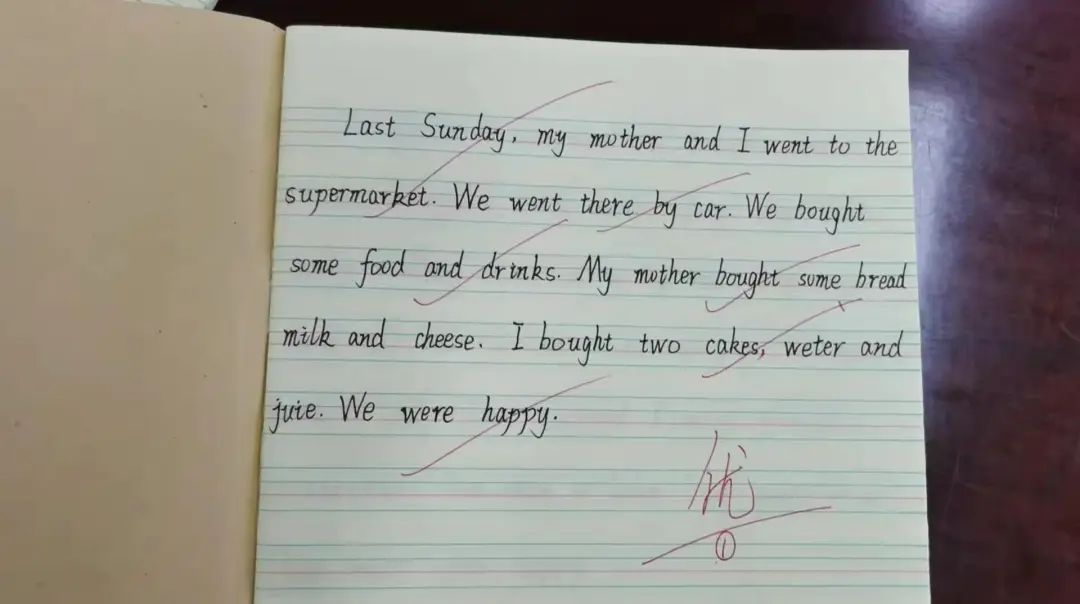 Last Sunday, my mother and I went to the
supermarket. We went there by car. We bought
some food and drinks. My mother bought some bread
milk and cheese. I bought two cakes, weter and
juie. We were happy.
优
①